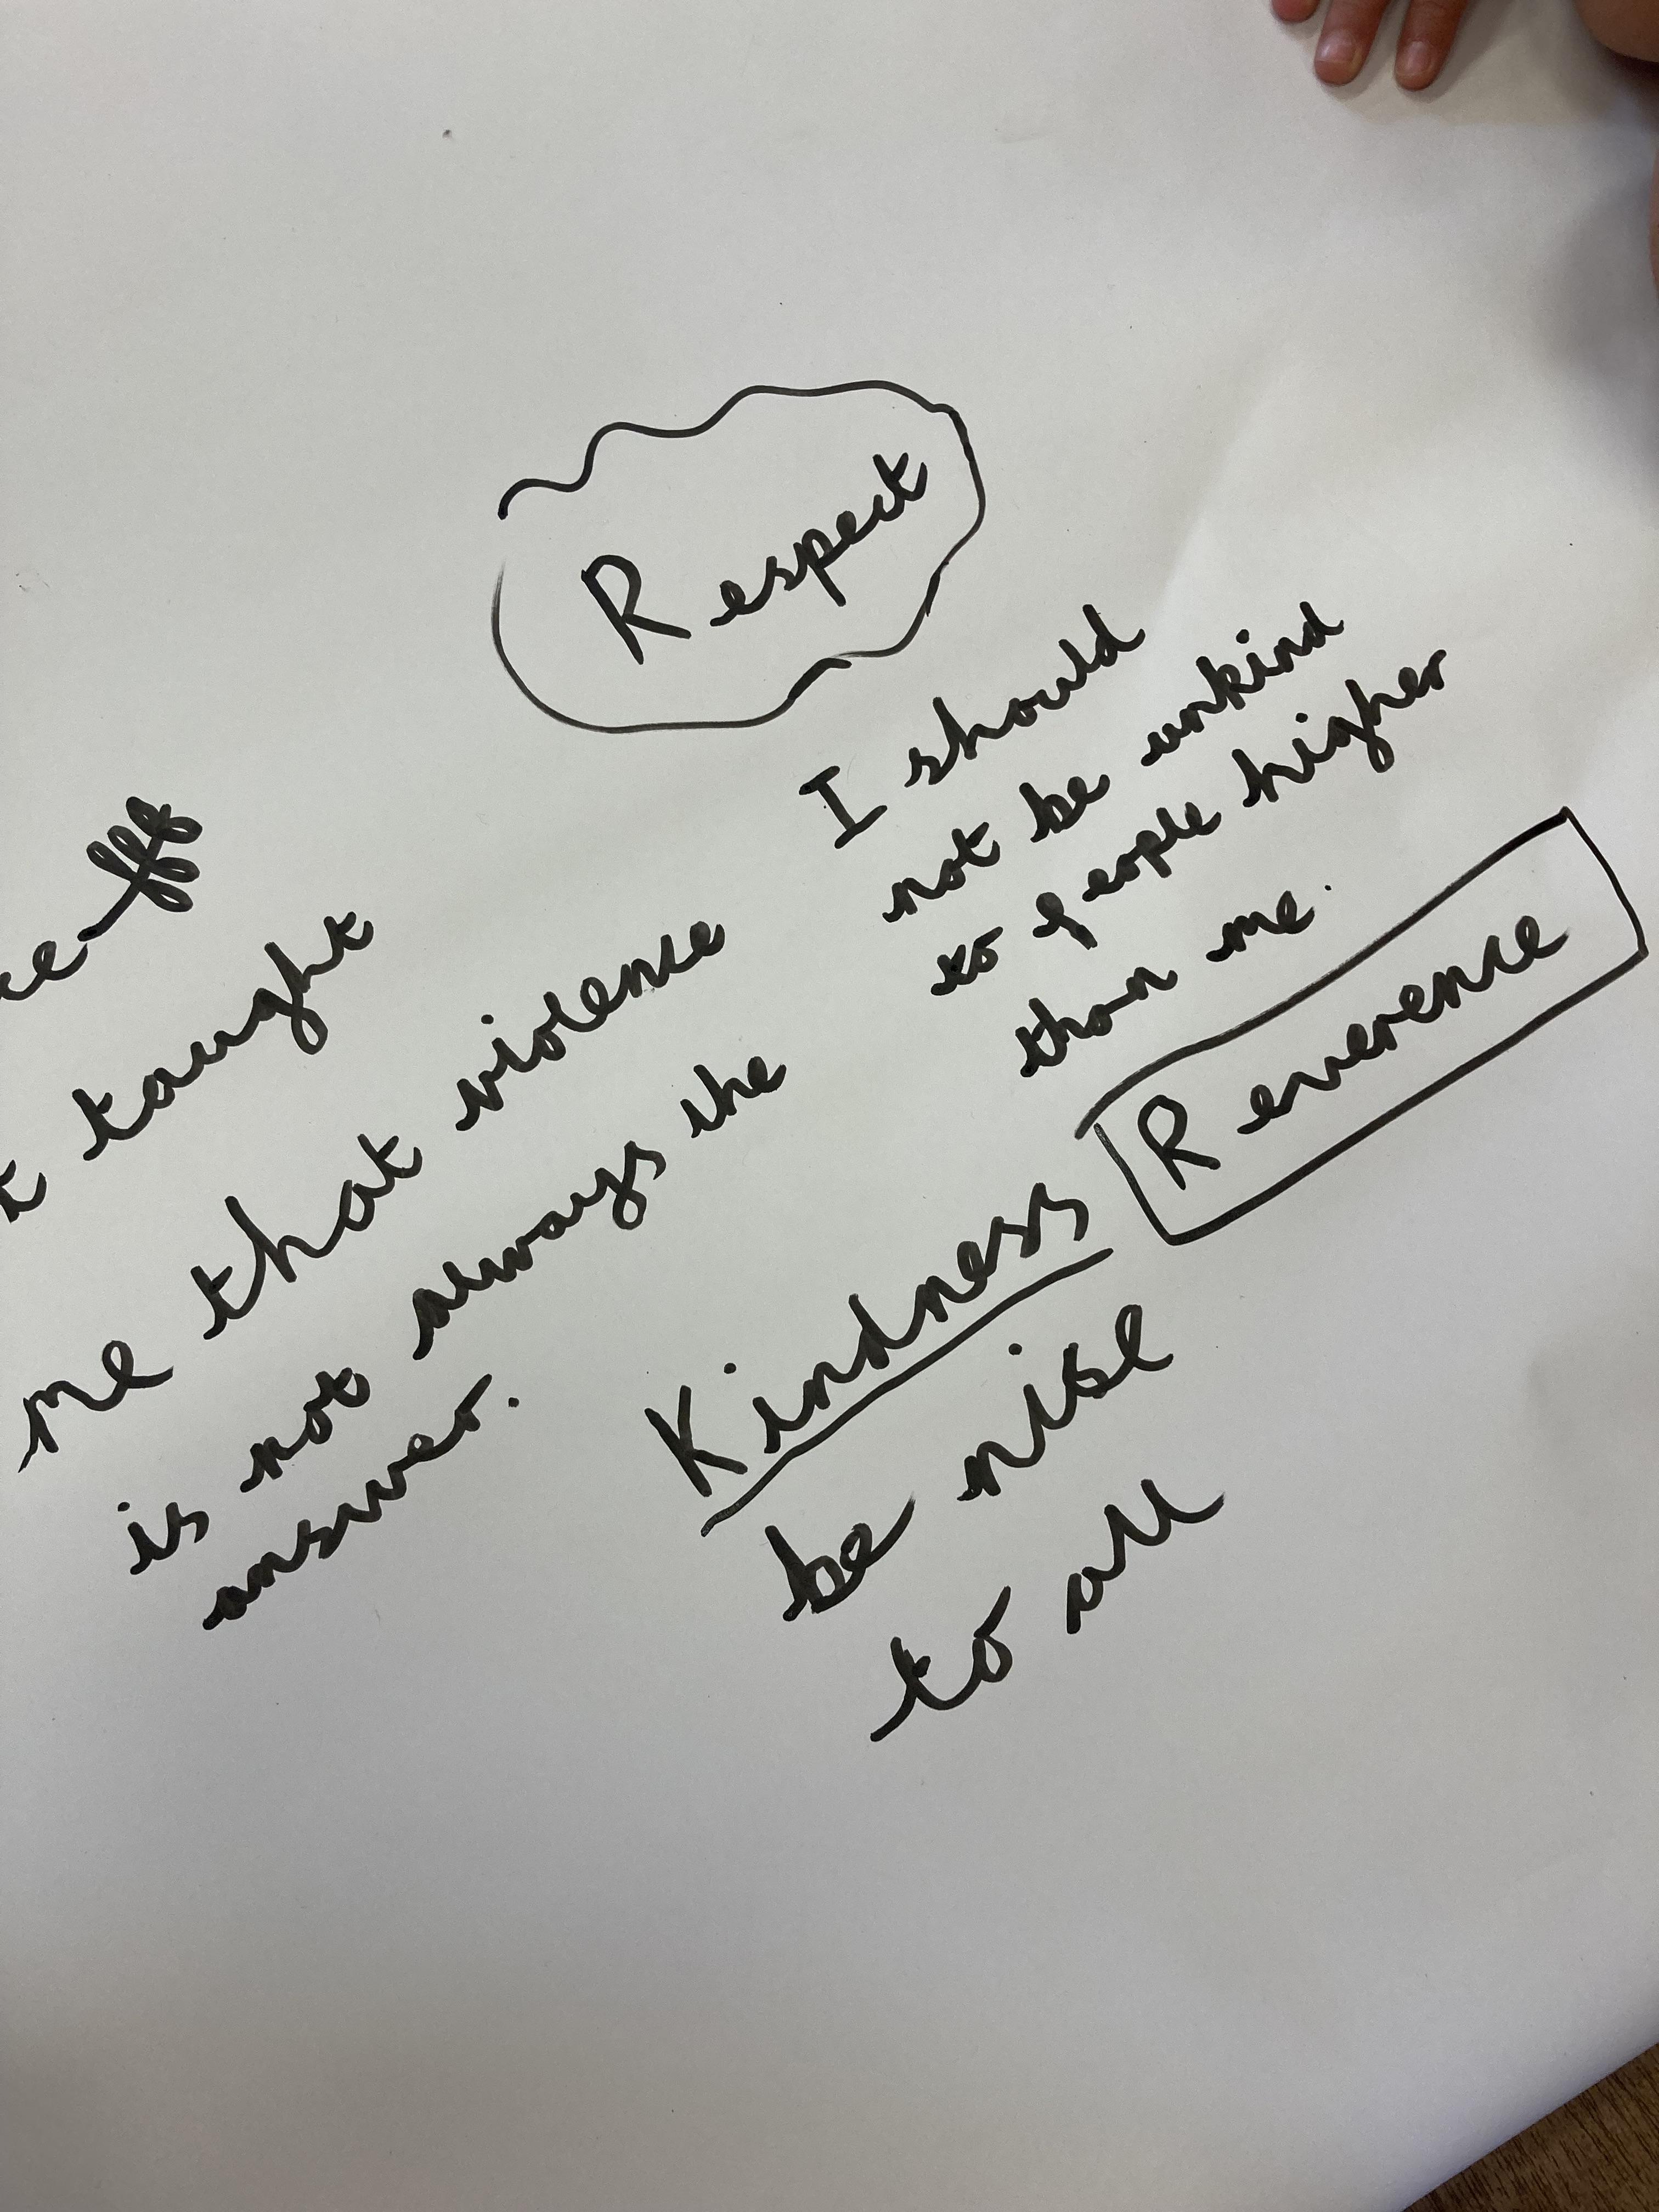 Respect
I should
not be unkind
to people higher
than me.
Reverence
taught
me that violence
is not always the
answer.
Kindness
be nise
to all